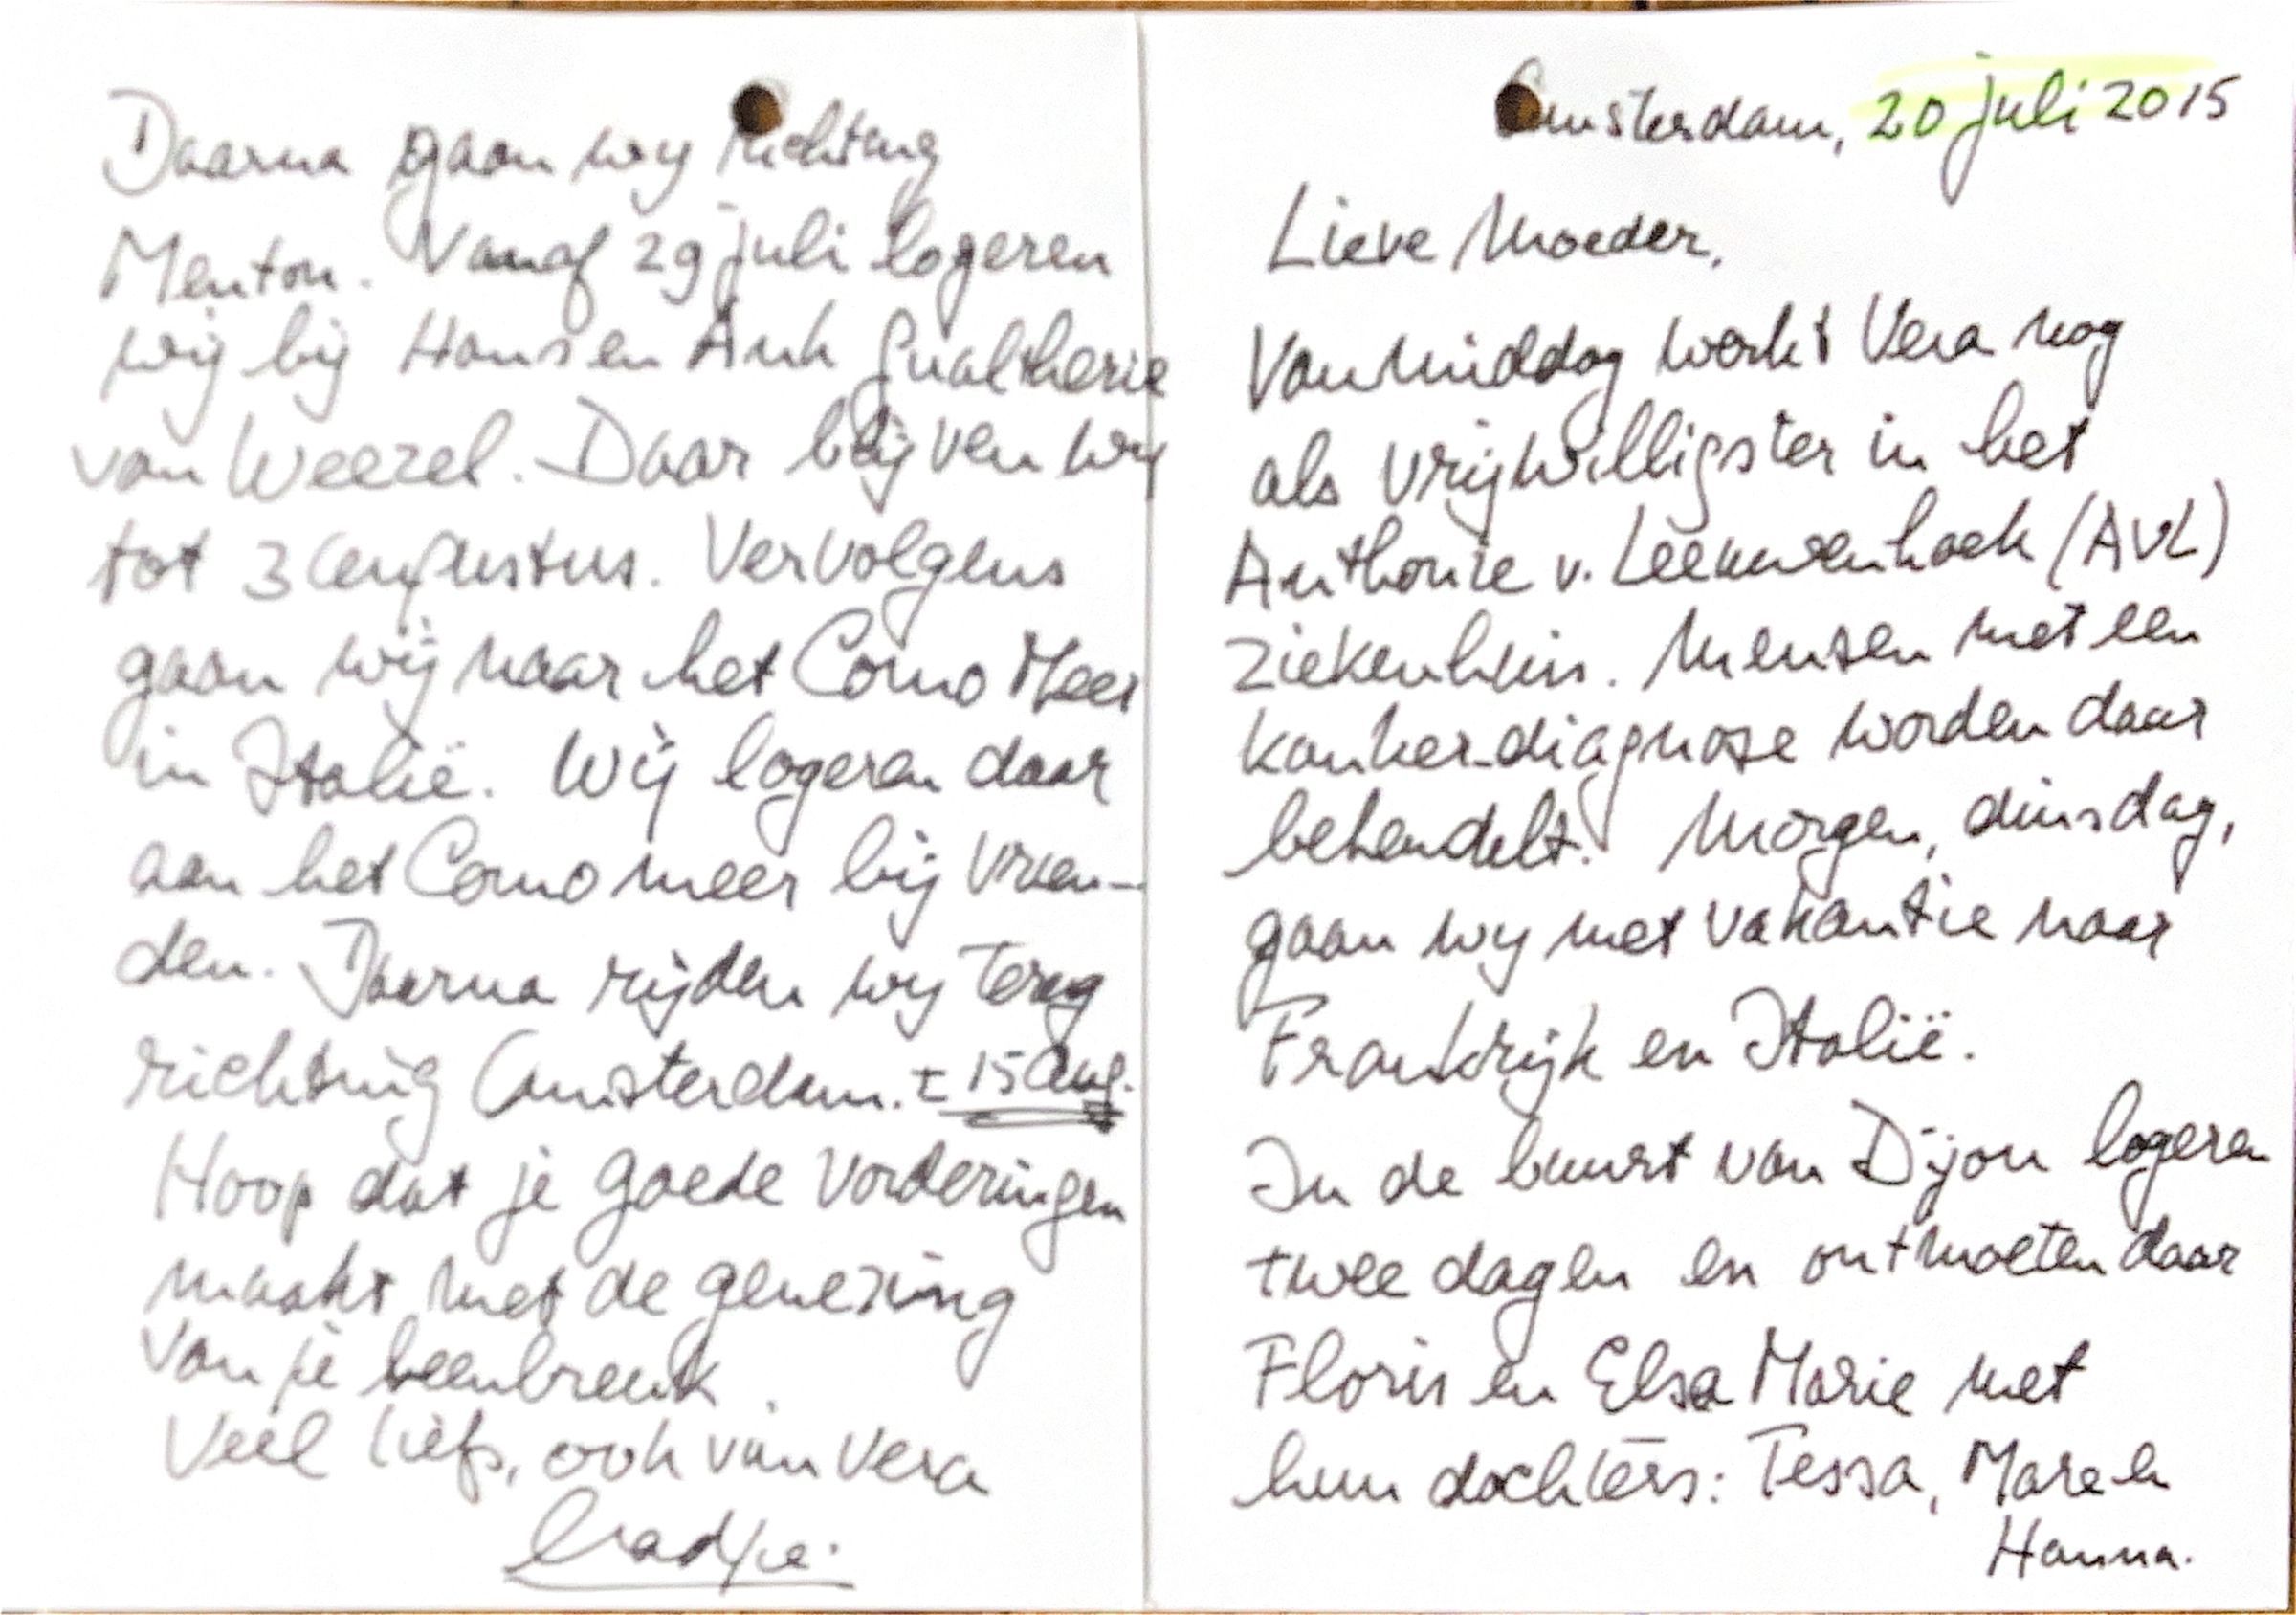 Amsterdam, 20 juli 2015
Lieve Moeder,
Vanmiddag werkt Vera nog
als vrijwilligster in het
Anthonie v. Leeuwenhoek (AVL)
ziekenhuis. Mensen met een
kanker-diagnose worden daar
behandelt. Morgen, dinsdag,
gaan wij met vakantie naar
Frankrijk en Italië.
In de buurt van Dijon logeren
twee dagen en ontmoeten daar
Floris en Elsa Marie met
hun dochters: Tessa, Mare en
Hanna.
Daarna gaan wij richting
Menton. Vanaf 29 juli logeren
wij bij Hans en Ank Gualtherie
van Weezel. Daar blijven wij
tot 3 augustus. Vervolgens
gaan wij naar het Como Meer
in Italië. Wij logeren daar
aan het Como meer bij vrien-
den. Daarna rijden wij terug
richting Amsterdam. ± 15 aug.
Hoop dat je goede vorderingen
maakt met de genezing
van je beenbreuk.
Veel liefs, ook van Vera